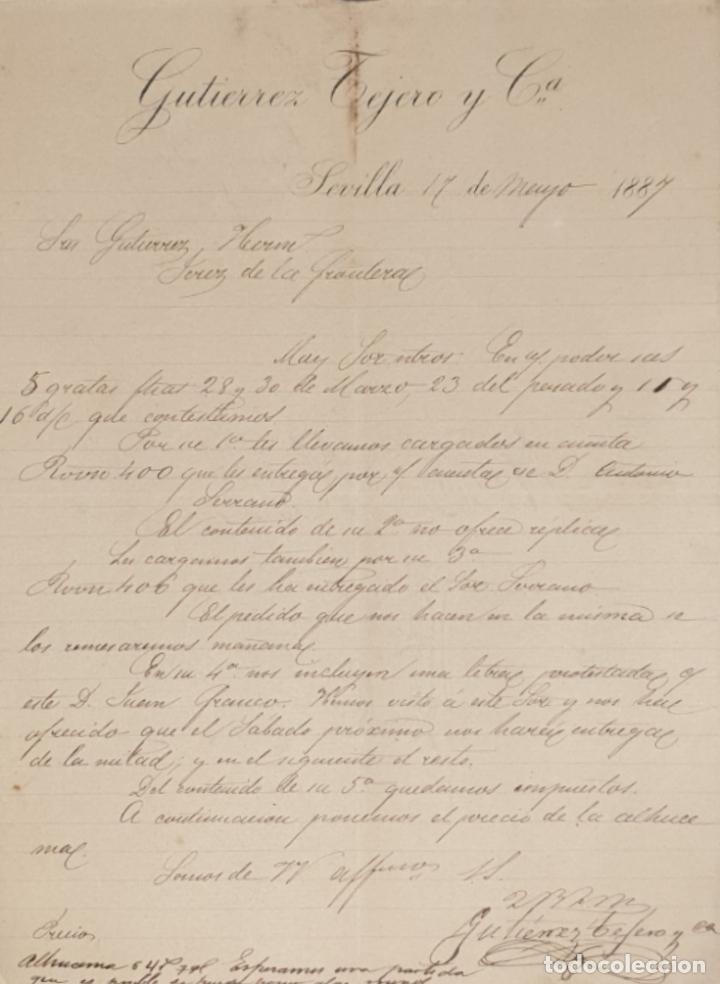 Gutierrez Tejero y Cª
Sevilla 17 de Mayo 1887
Sres Gutierrez Herms
Jerez de la Frontera
Muy Sor ntros. En n/ poder sus
5 gratas fhas 28 y 30 de Marzo, 23 del pasado y 11 y
16 d/c que contestamos.
Por su 1ª les llevamos cargados en cuenta
Rvon 400 que les entregó por n/ cuenta D. Antonio
Serrano.
El contenido de su 2ª no ofrece replica
Les cargamos tambien por su 3ª
Rvon 406 que les ha entregado el Sor Serrano
El pedido que nos hacen en la misma se
los remesaremos mañana.
En su 4ª nos incluyen una letra protestada
este D. Juan Franco. Hemos visto á este Sor y nos ha
ofrecido que el Sabado próximo nos hará entrega
de la mitad, y en el siguiente el resto.
Del contenido de su 5ª quedamos impuestos.
A continuacion ponemos el precio de la alhuce
ma.
Somos de VV affmos S.S.
Q B S M
Gutiérrez Tejero y Ca
Precios
Alhucema Esperamos una partida
que es
todocoleccion